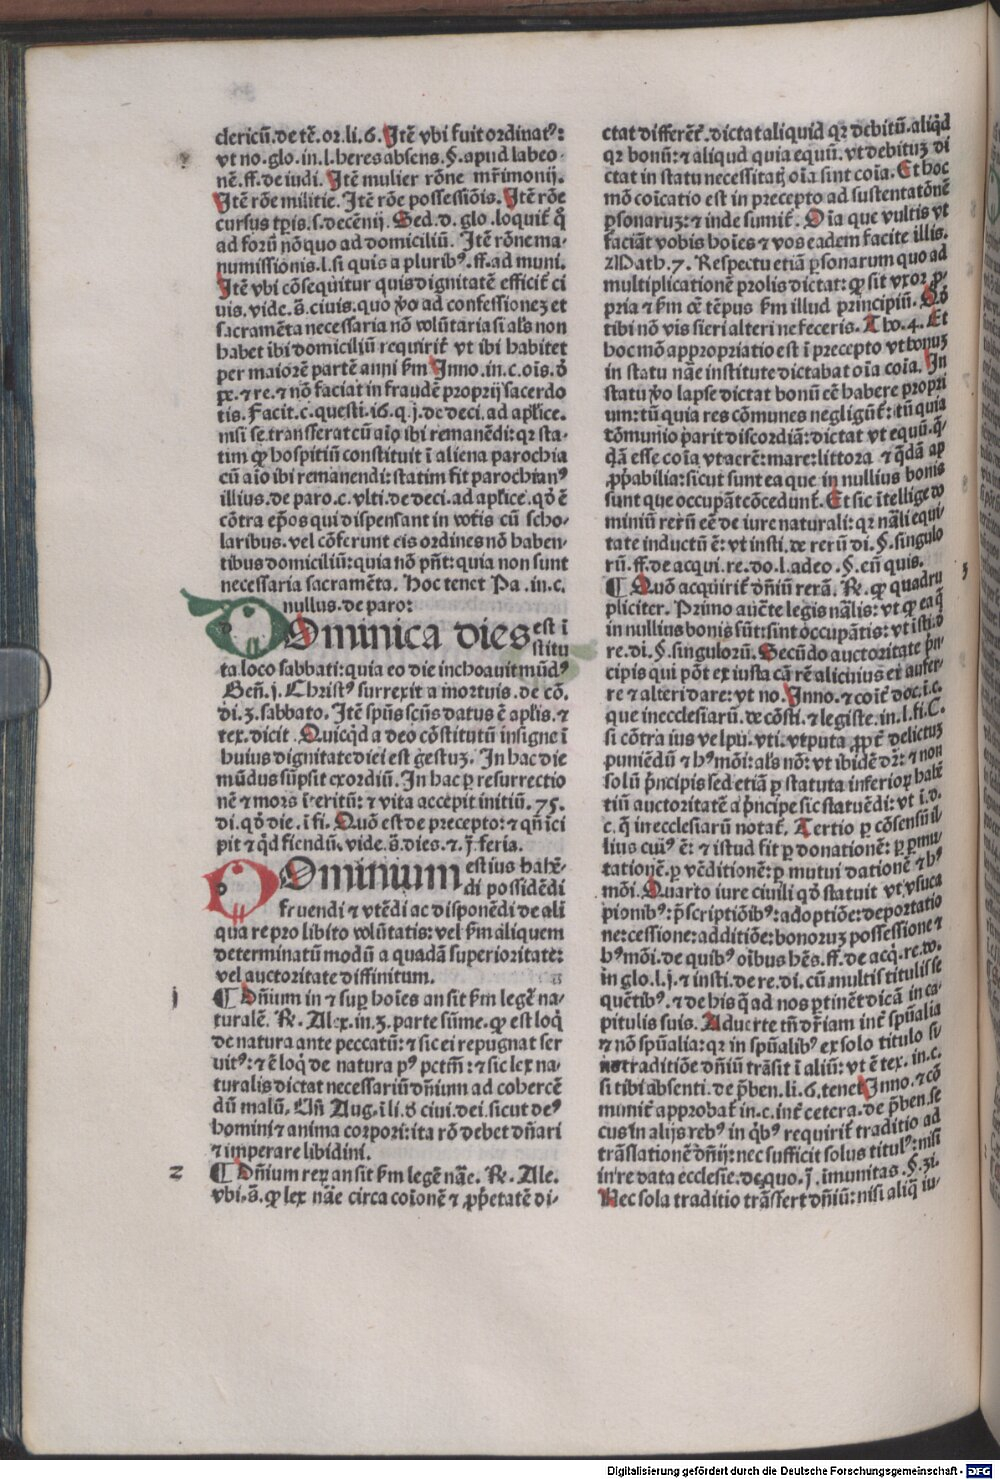 clericū.de tē.or.li.6. Itē vbi fuit ordinatꝰ:
vt no.glo.in.l.heres absens.§.apud labeo-
nē.ff.de iudi. Itē mulier rōne mr̄imonij.
Itē rōe militie. Itē rōe possessiōis. Itē rōe
cursus tp̄is.s.decēnij. Sed.d.glo.loquit̄ q̄
ad forū nō quo ad domiciliū. Itē rōne ma-
numissionis.l.si quis a pluribꝰ.ff.ad muni.
Itē vbi cōsequitur quis dignitatē efficit̄ ci
uis.vide.s̄.ciuis.quo v̄o ad confessioneȝ et
sacramēta necessaria nō volūtaria si al̄s non
habet ibi domiciliū requirit̄ vt ibi habitet
per maiorē partē anni ẜm Inno.in.c.oīs.d̄
pe.⁊ re.⁊ nō faciat in fraudē proprij sacerdo
tis. Facit.c.questi.16.q.j.de deci.ad apl̄ice.
nisi se transferat cū aīo ibi remanēdi: qr sta-
tim ꝙ hospitiū constituit ī aliena parochia
cū aīo ibi remanendi: statim fit parochianꝰ
illius.de paro.c.vlti.de deci.ad apl̄ice.qd̄ ē
cōtra ep̄os qui dispensant in votis cū scho-
laribus.vel cōferunt eis ordines nō haben-
tibus domiciliū: quia nō pn̄t: quia non sunt
necessaria sacramēta. Hoc tenet Pa.in.c.
nullus.de paro:
DOminica dies est ī
stitu
ta loco sabbati: quia eo die inchoauit mūdꝰ
Gen̄.j. Christꝰ surrexit a mortuis.de cō.
di.3.sabbato. Itē sp̄us scūs datus ē apl̄is.⁊
tex.dicit. Quicqd a deo cōstitutū insigne ī
huius dignitate diei est gestuȝ. In hac die
mūdus sūpsit exordiū. In hac ꝑ resurrectio
nē ⁊ mors īteritū: ⁊ vita accepit initiū.75.
di.qd̄ die.ī fi. Quō est de precepto: ⁊ qn̄ īci
pit ⁊ qd fiendū.vide.s̄.dies.⁊.j̄.feria.
DOminium est ius habē-
di possidēdi
fruendi ⁊ vtēdi ac disponēdi de ali
qua re pro libito volūtatis: vel ẜm aliquem
determinatū modū a quadā superioritate:
vel auctoritate diffinitum.
j ¶ Dn̄ium in ⁊ suꝑ hoīes an sit ẜm legē na-
turalē. R̄. Alex.in.3.parte sūme.ꝙ est loq̄
de natura ante peccatū: ⁊ sic ei repugnat ser
uitꝰ: ⁊ ē loq̄ de natura pꝰ pctm̄: ⁊ sic lex na-
turalis dictat necessariū dn̄ium ad cobercē
dū malū. Un̄ Aug.ī li.8 ciui.dei.sicut deꝰ
homini ⁊ anima corpori: ita rō debet dn̄ari
⁊ imperare libidini.
2 ¶ Dn̄ium reꝝ an sit ẜm legē nāe. R̄. Ale.
vbi.s̄.ꝙ lex nāe circa coīonē ⁊ ꝓp̄etatē di-
ctat differēt̄.dictat aliquid qr debitū.aliqd
qr bonū: ⁊ aliqud quia equū. vt debituȝ di
ctat in statu necessitatꝭ oīa sint coīa. Et hoc
mō coīcatio est in precepto ad sustentatōnē
ꝑsonaruȝ: ⁊ inde sumit̄. Oīa que vultis vt
faciāt vobis hoīes ⁊ vos eadem facite illis.
Math.7. Respectu etiā ꝑsonarum quo ad
multiplicationē prolis dictat: ꝙ sit vxor ꝓ-
pria ⁊ ẜm eē tēpus ẜm illud principiū. Qd̄
tibi nō vis fieri alteri ne feceris. Tho.4. Et
hoc mō appropriatio est ī precepto vt bonuȝ
in statu nāe institute dictabat oīa coīa. In
statu v̄o lapse dictat bonū eē habere propri
um: tū quia res cōmunes negligūt̄: tū quia
cōmunio parit discordiā: dictat vt equū.q̄-
dā esse coīa vt aerē: mare: littora ⁊ qdā ap
ꝓp̄abilia: sicut sunt ea que in nullius bonis
sunt que occupāt̄ cōcedunt̄. Et sic ītellige do
miniū rerū eē de iure naturali: qr nāli equi-
tate inductū ē: vt insti. de rerū di.§.singulo
rū.ff.de acqui.re.do.l.adeo.§.cū quis.
3 ¶ Quō acquirit̄ dn̄iū rerā. R̄.ꝙ quadru
pliciter. Primo auēte legis nālis: vt ꝙ ea q̄
in nullius bonis sūt: sint occupātis: vt īsti.d̄
re.di.§.singulorū. Secūdo auctoritate pn̄-
cipis qui pōt ex iusta cā rē alicuius ei aufer-
re ⁊ alteri dare: vt no. Inno.⁊ coīt̄ doc.ī.c.
que in ecclesiarū.de cōsti.⁊ legiste.in.l.fi.C.
si cōtra ius vel pu.vti.vtputa ꝓpt̄ delictuȝ
puniēdū ⁊ hꝰmōi: al̄s nō: vt ibidē dr̄: ⁊ non
solū p̄ncipis sed etiā ꝑ statuta inferioꝝ habē
tiū auctoritatē a p̄ncipe sic statuēdi: vt ī.d.
c.q̄ in ecclesiarū notat̄. Tertio ꝑ cōsensū il
lius cuiꝰ ē: ⁊ istud fit ꝑ donationē: ꝑ ꝑmu
tationē ꝑ vēditionē: ꝑ mutui dationē ⁊ hꝰ
mōi. Quarto iure ciuili qd̄ statuit vt ꝑ vsuca
pionibꝰ: p̄scriptiōibꝰ: adoptiōe: deportatio
ne: cessione: additiōe: bonoruȝ possessione ⁊
hꝰmōi. de quibꝰ oībus hēs.ff.de acq̄.re.do.
in glo.l.j.⁊ insti.de re.di.cū multis titulis se
quētibꝰ.⁊ de his q̄ ad nos ꝑtinēt dicā in ca-
pitulis suis. Aduerte tn̄ dr̄iam int̄ spūalia
⁊ nō spūalia: qr in spūalibꝰ ex solo titulo si-
ne traditiōe dn̄iū trāsit ī aliū: vt ē tex.in.c.
si tibi absenti.de p̄ben.li.6.tenet Inno.⁊ cō
munit̄ approbat̄ in.c.int̄ cetera.de p̄ben.se
cus in alijs rebꝰ in qbꝰ requirit̄ traditio ad
trāslationē dn̄ij: nec sufficit solus titulꝰ: nisi
in re data ecclesie. de quo.j̄.īmunitas.§.3i.
Nec sola traditio trāsfert dn̄iū: nisi aliq̄ iu-
Digitalisierung gefördert durch die Deutsche Forschungsgemeinschaft - DFG